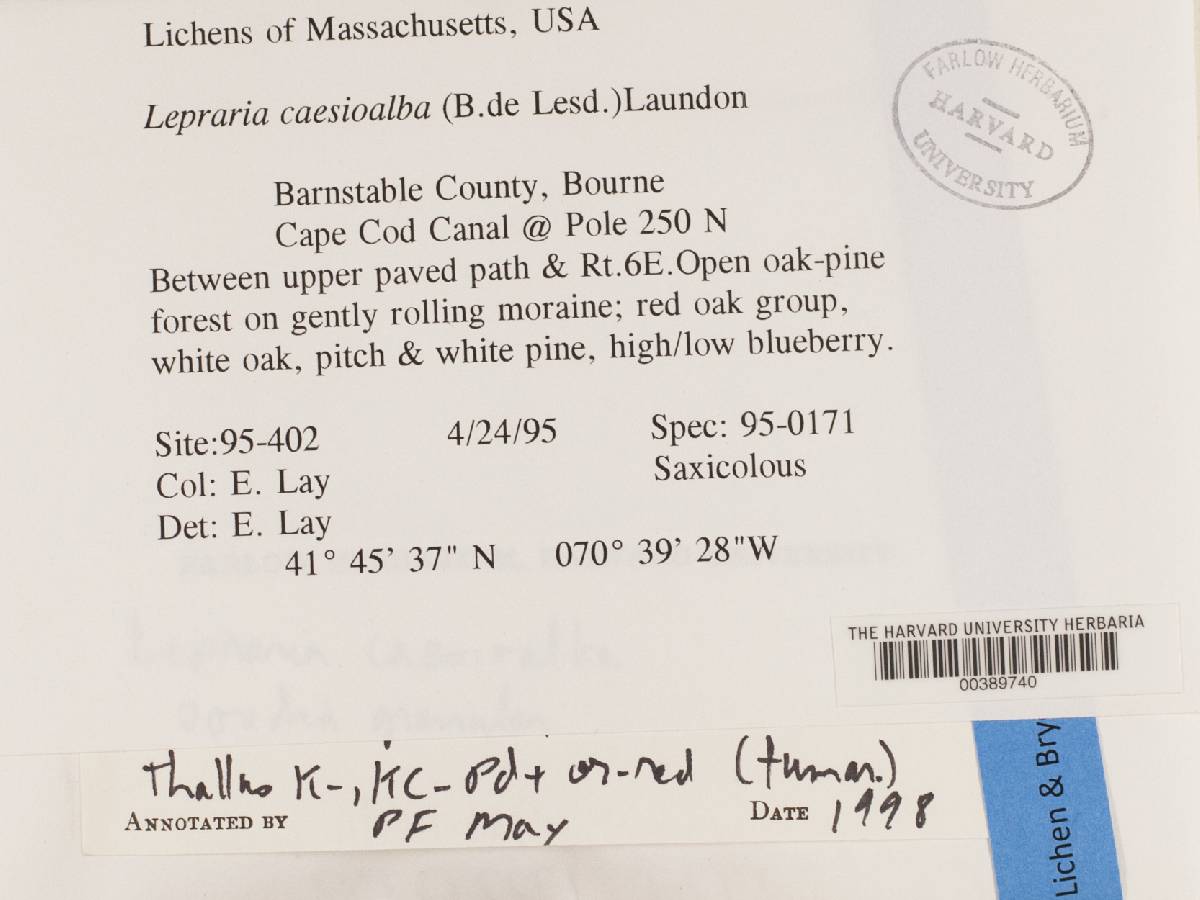 Lichens of Massachusetts, USA
Lepraria caesioalba (B.de Lesd.)Laundon
FARLOW HERBARIUM
HARVARD
UNIVERSITY
Barnstable County, Bourne
Cape Cod Canal @ Pole 250 N
Between upper paved path & Rt.6E.Open oak-pine
forest on gently rolling moraine; red oak group,
white oak, pitch & white pine, high/low blueberry.
Site:95-402 4/24/95 Spec: 95-0171
Col: E. Lay Saxicolous
Det: E. Lay
41° 45' 37" N 070° 39' 28"W
THE HARVARD UNIVERSITY HERBARIA
00389740
Thallus K-, KC- Pd+ or-red (fumar.)
ANNOTATED BY PF May DATE 1998
Lichen & Bry